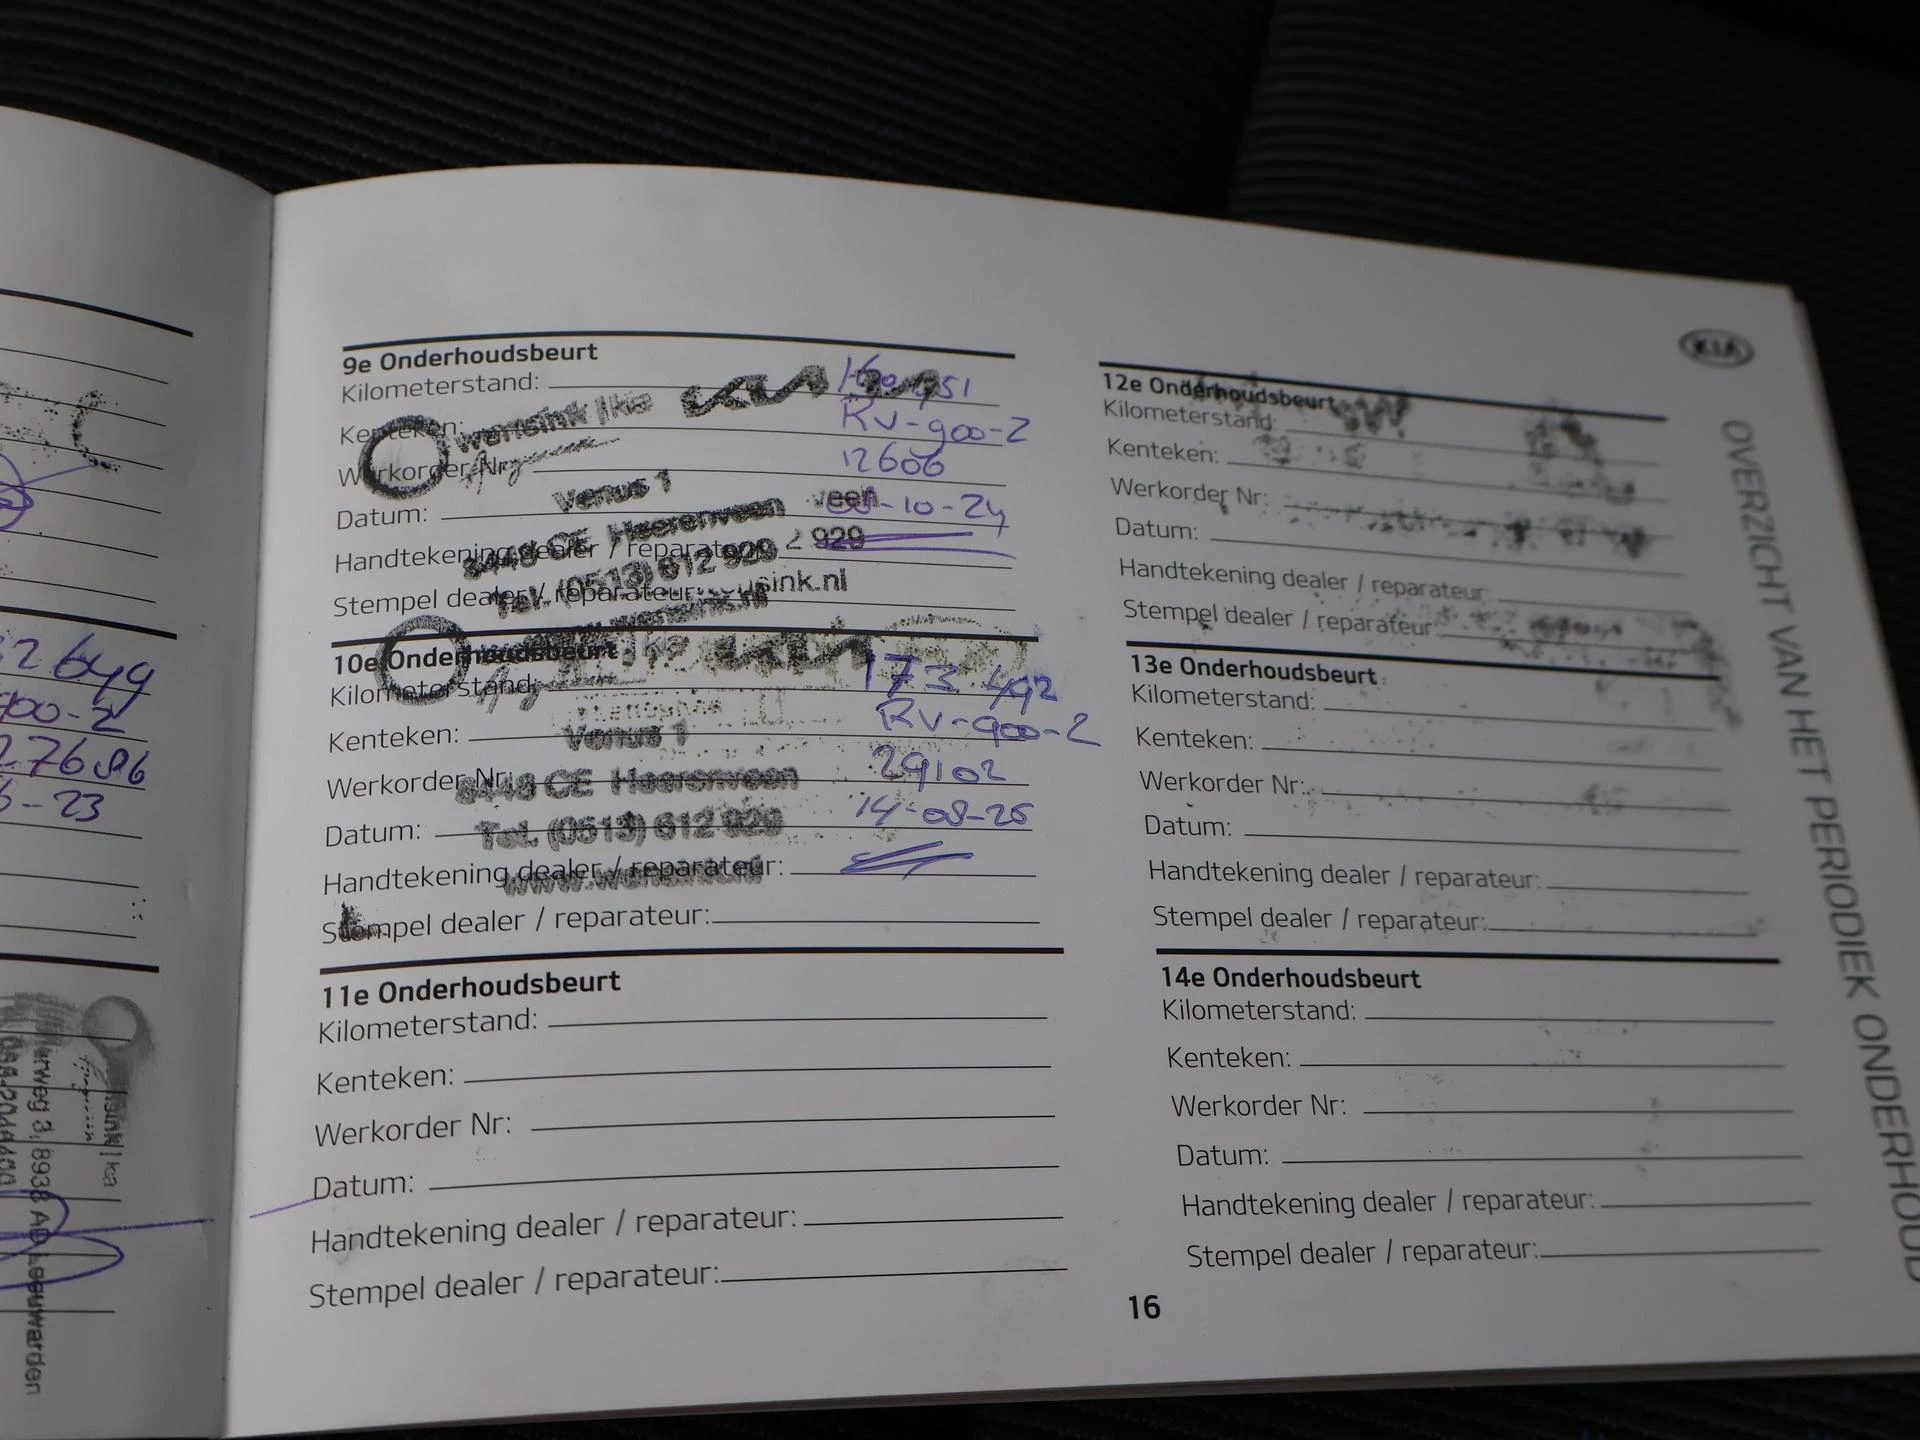 2649
900-2
27696
-23
rweg 3, 8938 AD Leeuwarden
9e Onderhoudsbeurt
Kilometerstand:
Kenteken: RV-900-2
wensink | kia
Werkorder Nr: 12606
Venus 1
Datum: -10-24
8448 CE Heerenveen
Handtekening dealer / reparateur:
Tel. (0513) 612 929
Stempel dealer / reparateur:
www.wensink.nl
10e Onderhoudsbeurt
Kilometerstand: 173 492
Kenteken: RV-900-2
Venus 1
Werkorder Nr: 29102
8448 CE Heerenveen
Datum: 14-08-25
Tel. (0513) 612 929
Handtekening dealer / reparateur:
www.wensink.nl
Stempel dealer / reparateur:
11e Onderhoudsbeurt
Kilometerstand:
Kenteken:
Werkorder Nr:
Datum:
Handtekening dealer / reparateur:
Stempel dealer / reparateur:
12e Onderhoudsbeurt
Kilometerstand:
Kenteken:
Werkorder Nr:
Datum:
Handtekening dealer / reparateur:
Stempel dealer / reparateur:
13e Onderhoudsbeurt
Kilometerstand:
Kenteken:
Werkorder Nr:
Datum:
Handtekening dealer / reparateur:
Stempel dealer / reparateur:
14e Onderhoudsbeurt
Kilometerstand:
Kenteken:
Werkorder Nr:
Datum:
Handtekening dealer / reparateur:
Stempel dealer / reparateur:
16
KIA
OVERZICHT VAN HET PERIODIEK ONDERHOUD